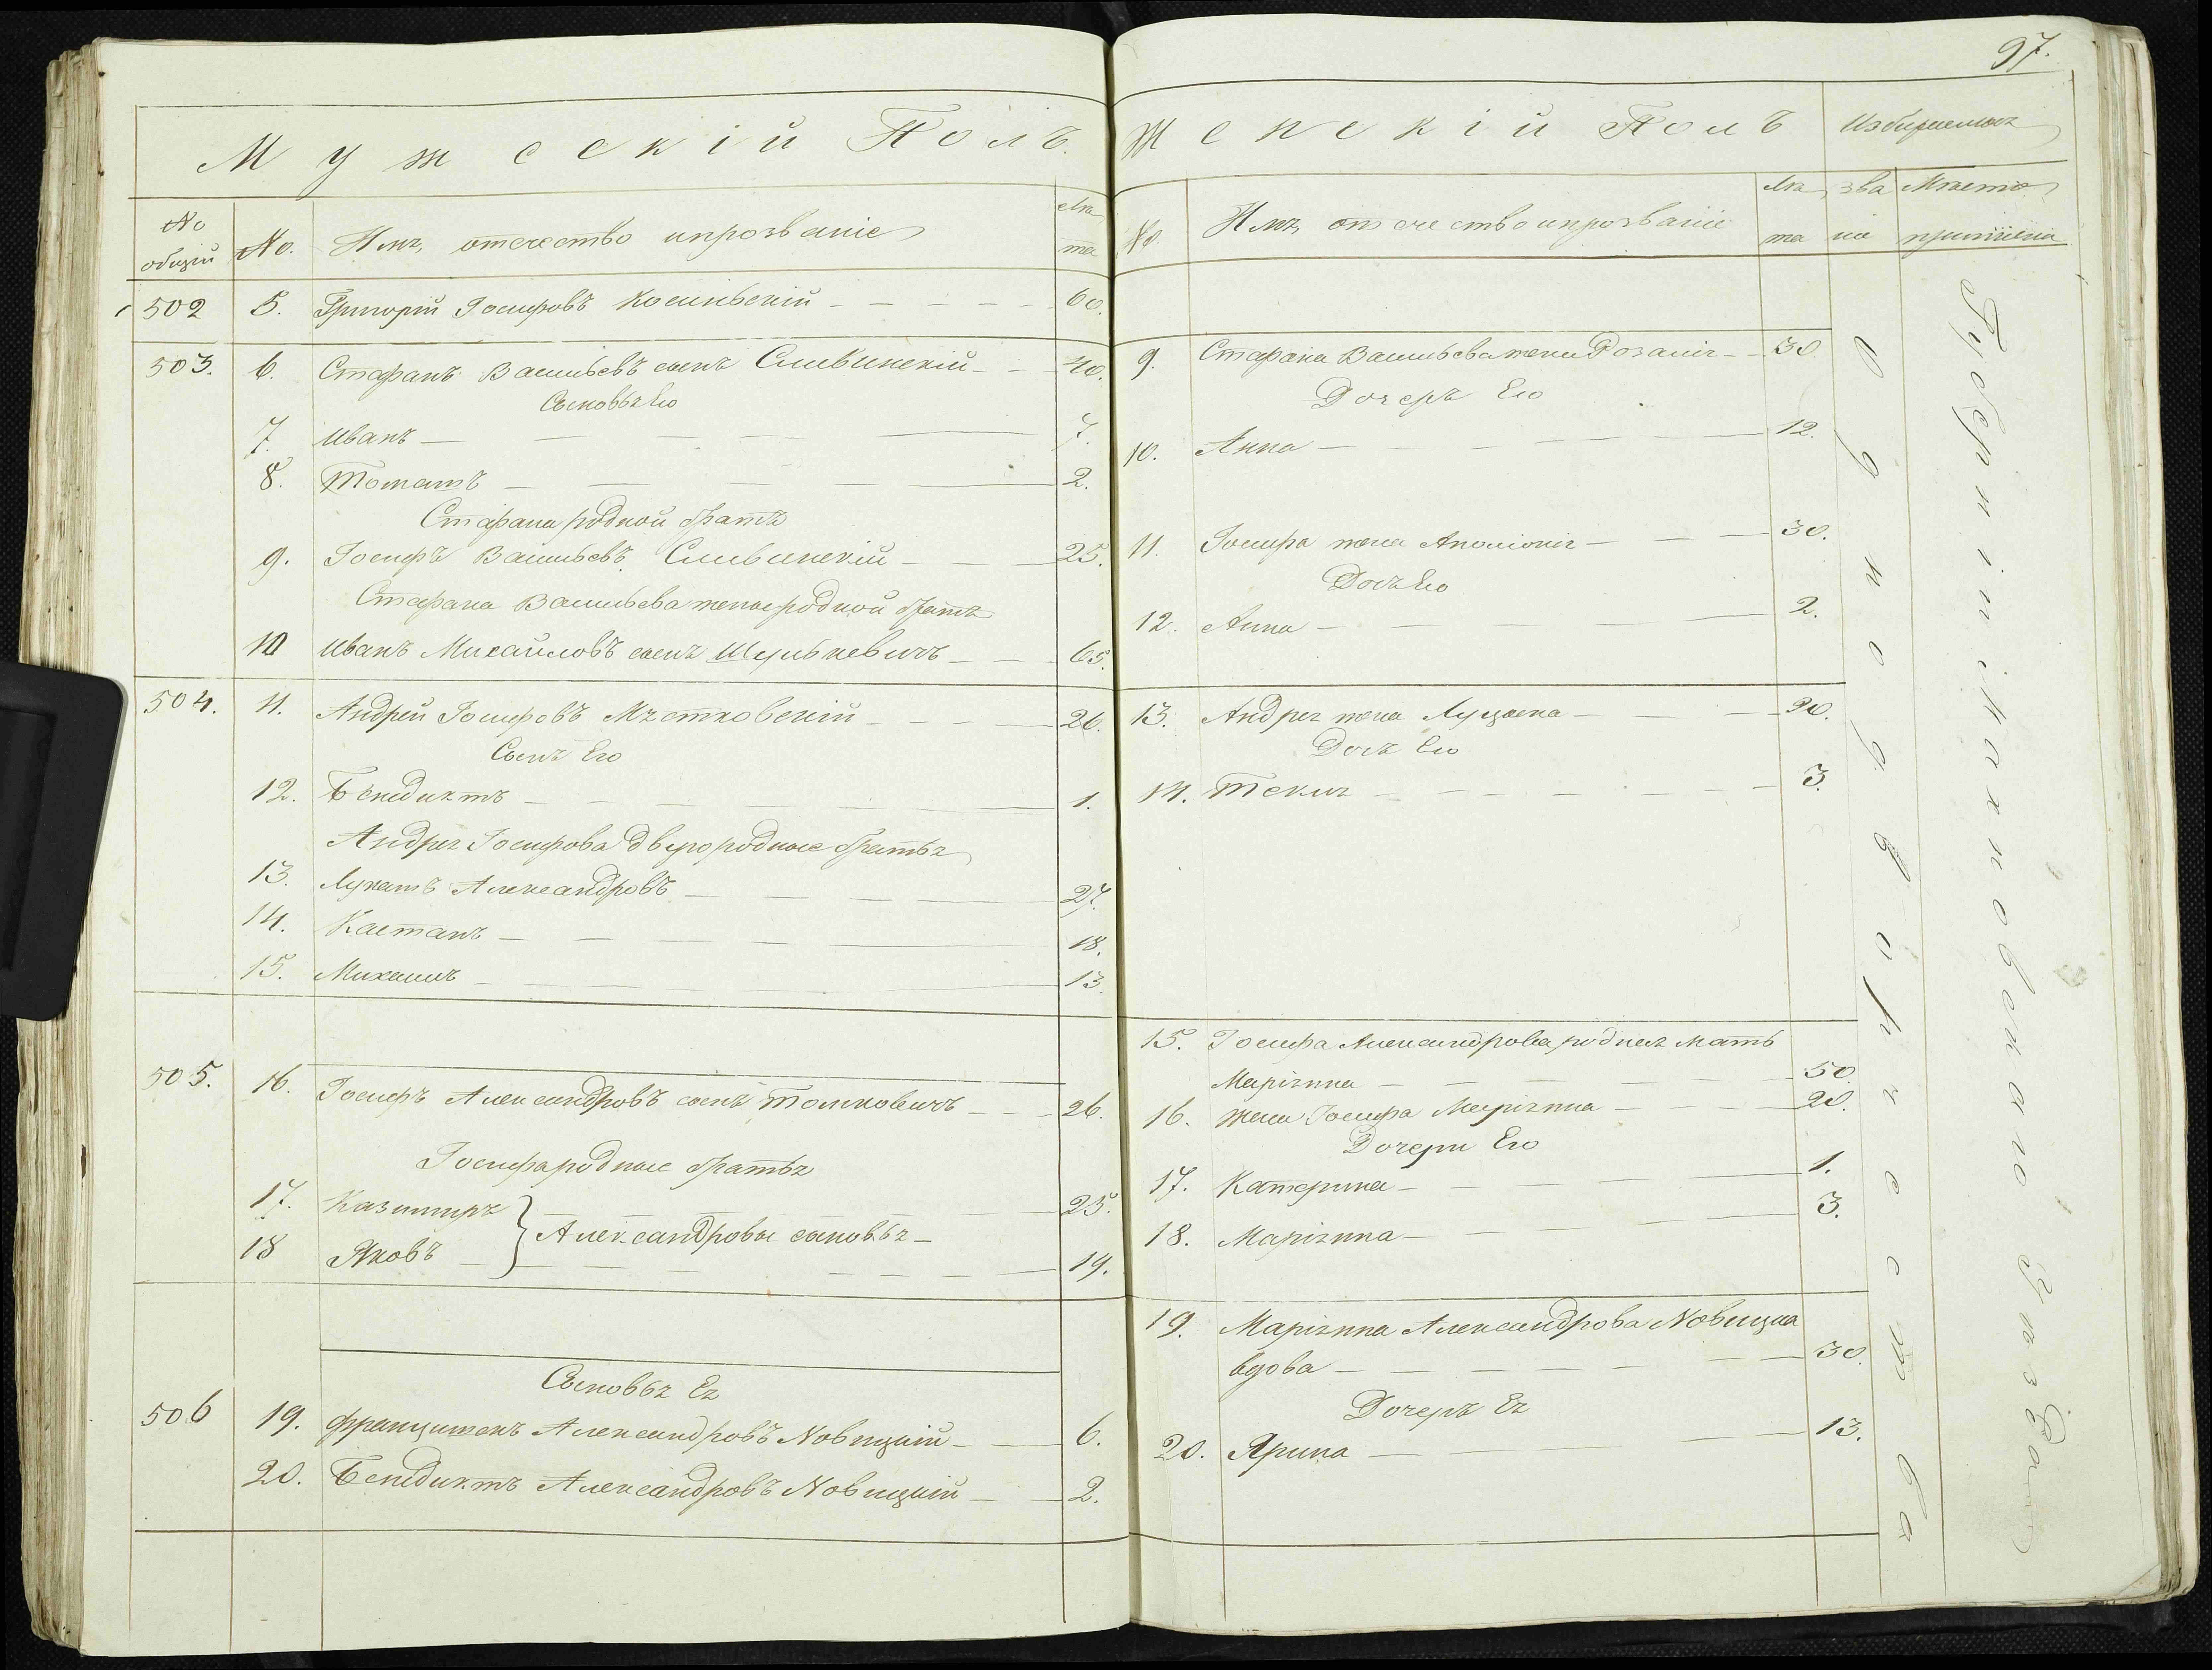 97.
Мужеский Полъ.
No общій
No.
Имя, отечество и прозваніе
Лѣта
502 5. Григорій Іосифовъ Косиньскій 60.
503. 6. Стефанъ Васильевъ сынъ Сливинскій 40.
Сыновья Его
7. Иванъ 7.
8. Томашъ 2.
Стефана родной братъ
9. Іосифъ Васильевъ Сливинскій 25.
Стефана Васильева жены родной братъ
10 Иванъ Михайловъ сынъ Шулькевичъ 65.
504. 11. Андрей Іосифовъ Мѣтковскій 26.
Сынъ Его
12. Бенедиктъ 1.
Андрея Іосифова двуюродные братья
13. Лукашъ Александровъ 27.
14. Каетанъ 18.
15. Михаилъ 13.
505. 16. Іосифъ Александровъ сынъ Томковичъ 26.
Іосифа родные братья
17. Казимиръ 25.
Александровы сыновья
18 Яковъ 19.
Сыновья Ея
506 19. Францишекъ Александровъ Новицкій 6.
20. Бенедиктъ Александровъ Новицкій 2.
Женскій Полъ
Избираемыя
No.
Имя, отечество и прозваніе
Лѣта
званіе
Мѣсто приписки
9. Стефана Васильева жена Розалія 30
Дочерь Его
10. Анна 12.
11. Іосифа жена Аполонія 30.
Дочь Его
12. Анна 2.
13. Андрея жена Луцыена 20.
Дочь Его
14. Текля 3.
15. Іосифа Александрова родная мать
Маріянна 50
16. жена Іосифа Маріянна 20.
Дочери Его
17. Катерина 1.
18. Маріянна 3.
19. Маріянна Александрова Новицкая
вдова 30.
Дочерь Ея
20. Ярина 13.
Однодворчество
Губерніи Махновскаго Уезда